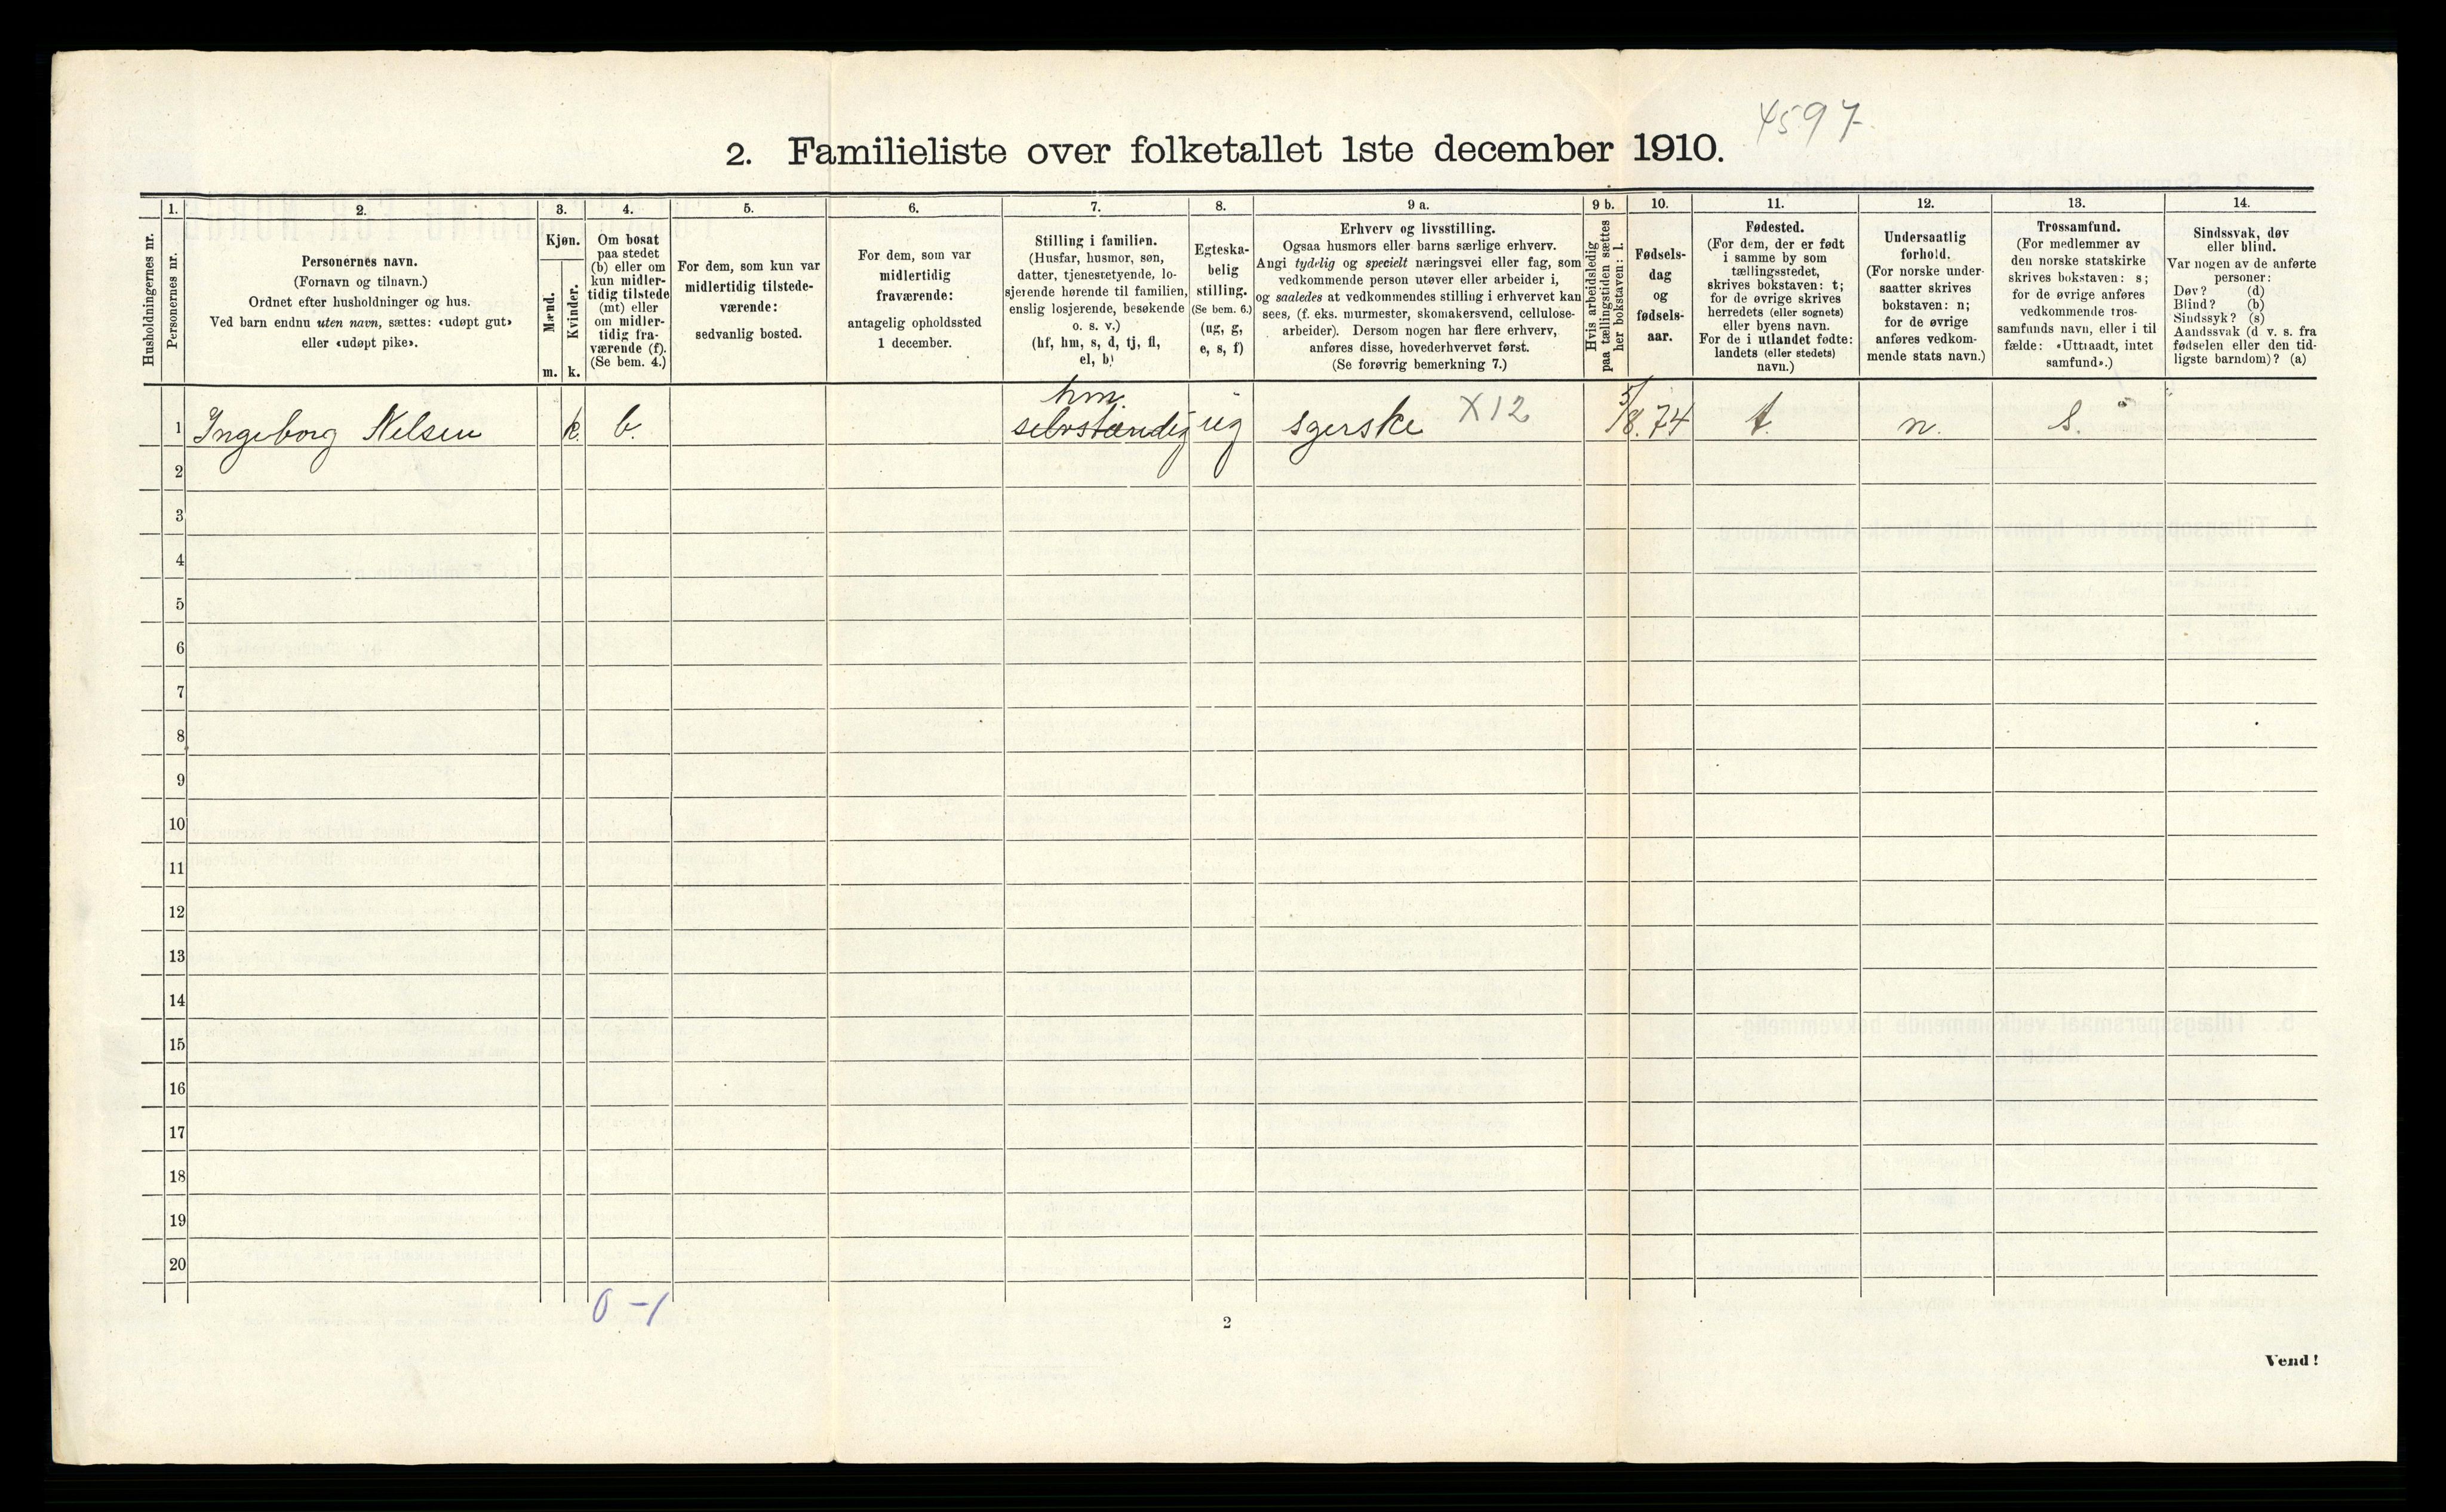 4597
2. Familieliste over folketallet 1ste december 1910.
Husholdningernes nr.
1.
Personernes nr.
2.
Personernes navn.
(Fornavn og tilnavn.)
Ordnet efter husholdninger og hus.
Ved barn endnu uten navn, sættes: «udøpt gut»
eller «udøpt pike».
3.
Kjøn.
Mænd.
Kvinder.
m.
k.
4.
Om bosat
paa stedet
(b) eller om
kun midler-
tidig tilstede
(mt) eller
om midler-
tidig fra-
værende (f).
(Se bem. 4.)
5.
For dem, som kun var
midlertidig tilstede-
værende:
sedvanlig bosted.
6.
For dem, som var
midlertidig
fraværende:
antagelig opholdssted
1 december.
7.
Stilling i familien.
(Husfar, husmor, søn,
datter, tjenestetyende, lo-
sjerende hørende til familien,
enslig losjerende, besøkende
o. s. v.)
(hf, hm, s, d, tj, fl,
el, b)
8.
Egteska-
belig
stilling.
(Se bem. 6.)
(ug, g,
e, s, f)
9 a.
Erhverv og livsstilling.
Ogsaa husmors eller barns særlige erhverv.
Angi tydelig og specielt næringsvei eller fag, som
vedkommende person utøver eller arbeider i,
og saaledes at vedkommendes stilling i erhvervet kan
sees, (f. eks. murmester, skomakersvend, cellulose-
arbeider). Dersom nogen har flere erhverv,
anføres disse, hovederhvervet først.
(Se forøvrig bemerkning 7.)
9 b.
Hvis arbeidsledig
paa tællingstiden sættes
her bokstaven: l.
10.
Fødsels-
dag
og
fødsels-
aar.
11.
Fødested.
(For dem, der er født
i samme by som
tællingsstedet,
skrives bokstaven: t;
for de øvrige skrives
herredets (eller sognets)
eller byens navn.
For de i utlandet fødte:
landets (eller stedets)
navn.)
12.
Undersaatlig
forhold.
(For norske under-
saatter skrives
bokstaven: n;
for de øvrige
anføres vedkom-
mende stats navn.)
13.
Trossamfund.
(For medlemmer av
den norske statskirke
skrives bokstaven: s;
for de øvrige anføres
vedkommende tros-
samfunds navn, eller i til
fælde: «Uttraadt, intet
samfund».)
14.
Sindssvak, døv
eller blind.
Var nogen av de anførte
personer:
Døv? (d)
Blind? (b)
Sindssyk? (s)
Aandssvak (d v. s. fra
fødselen eller den tid-
ligste barndom)? (a)
hm.
1 Ingeborg Nelsen k. b. selvstændig ug sgerske X12 5/8.74 t. n. s.
2
3
4
5
6
7
8
9
10
11
12
13
14
15
16
17
18
19
20
0-1
2
Vend!